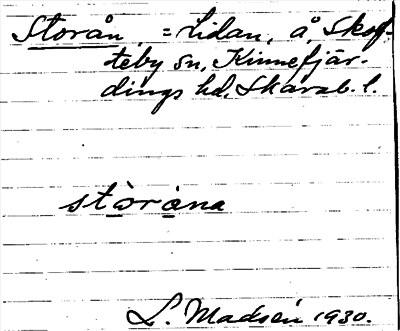 Storån, = Lidan, å, Skof-
teby sn, Kinnefjär-
dings hd, Skarab. l.
stòràna
L. Madsén 1930.